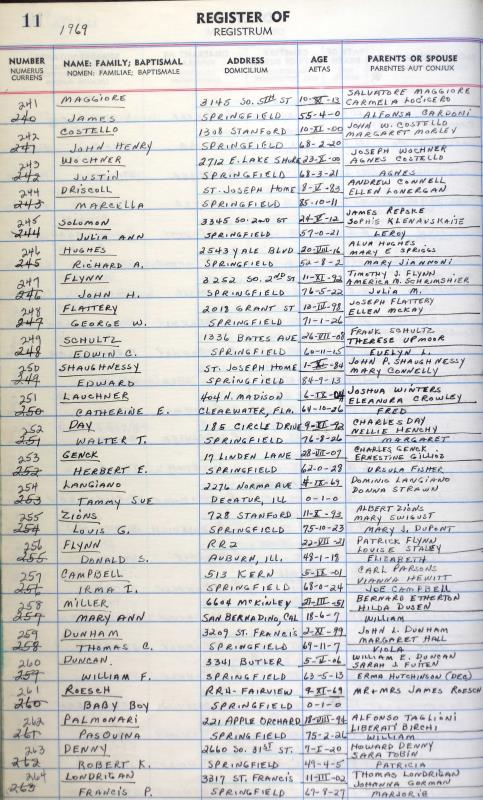 11
1969
REGISTER OF
REGISTRUM
NUMBER NAME: FAMILY; BAPTISMAL ADDRESS AGE PARENTS OR SPOUSE
NUMERUS CURRENS NOMEN: FAMILIAE; BAPTISMALE DOMICILIUM AETAS PARENTES AUT CONJUX
SALVATORE MAGGIORE
241 MAGGIORE 3145 SO. 5TH ST 10-XI-13 CARMELA LOCICERO
240 JAMES SPRINGFIELD 55-4-0 ALFONSA CARDONI
242 COSTELLO 1308 STANFORD 10-XI-00 JOHN W. COSTELLO
MARGARET MORLEY
241 JOHN HENRY SPRINGFIELD 68-2-20
243 WOCHNER 2712 E. LAKE SHORE 23-X-00 JOSEPH WOCHNER
AGNES COSTELLO
242 JUSTIN SPRINGFIELD 68-3-21 AGNES
244 DRISCOLL ST. JOSEPH HOME 8-V-83 ANDREW CONNELL
ELLEN LONERGAN
243 MARCELLA SPRINGFIELD 85-10-11
245 SOLOMON 3345 SO. 2ND ST 24-V-12 JAMES REPSKE
SOPHIE KLENAUSKAITE
244 JULIA ANN SPRINGFIELD 57-0-21 LEROY
246 HUGHES 2543 YALE BLVD 20-VIII-16 ALVA HUGHES
MARY E SPRIGGS
245 RICHARD A. SPRINGFIELD 52-8-2 MARY JIANNONI
247 FLYNN 3252 SO. 2ND ST 11-XI-92 TIMOTHY J. FLYNN
AMERICA M. SCHRIMSHIER
246 JOHN H. SPRINGFIELD 76-5-22 JULIA M.
248 FLATTERY 2018 GRANT ST 10-XII-98 JOSEPH FLATTERY
ELLEN MCKAY
247 GEORGE W. SPRINGFIELD 71-1-26
249 SCHULTZ 1336 BATES AVE 26-VII-08 FRANK SCHULTZ
THERESE UPMOOR
248 EDWIN C. SPRINGFIELD 60-11-15 EVELYN L.
250 SHAUGHNESSY ST. JOSEPH HOME JOHN P. SHAUGHNESSY
MARY CONNELLY
249 EDWARD SPRINGFIELD 84-9-13
251 LAUCHNER 404 N. MADISON JOSHUA WINTERS
ELEANORA CROWLEY
250 CATHERINE E. CLEARWATER, FLA. 64-10-26 FRED
252 DAY 185 CIRCLE DRIVE CHARLES DAY
NELLIE HENCHY
251 WALTER T. SPRINGFIELD 76-8-26 MARGARET
253 GENCK 17 LINDEN LANE 28-VIII-07 CHARLES GENCK
ERNESTINE
252 HERBERT E. SPRINGFIELD 62-0-28 URSULA FISHER
254 LANGIANO 2276 NORMA AVE DOMINIC LANGIANO
DONNA STRAWN
253 TAMMY SUE DECATUR, ILL 0-1-0
255 ZIONS 728 STANFORD 11-X-93 ALBERT ZIONS
MARY SWIGUST
254 LOUIS G. SPRINGFIELD 75-10-23 MARY J. DUPONT
256 FLYNN RR2 22-VIII-21 PATRICK FLYNN
LOUISE STALEY
255 DONALD S. AUBURN, ILL. 48-1-18 ELIZABETH
257 CAMPBELL 513 KERN 5-IX-01 CARL PARSONS
VIANNA HEWITT
256 IRMA I. SPRINGFIELD 68-0-24 JOE CAMPBELL
258 MILLER 6604 MCKINLEY 21-III-51 BERNARD ETHERTON
HILDA DUSEN
257 MARY ANN SAN BERNADINO, CAL 18-6-7 WILLIAM
259 DUNHAM 3209 ST. FRANCIS 2-XI-99 JOHN L. DUNHAM
MARGARET HALL
258 THOMAS C. SPRINGFIELD 69-11-7 VIOLA
260 DUNCAN 3341 BUTLER 5-V-06 WILLIAM E. DUNCAN
SARAH J. FUITEN
259 WILLIAM F. SPRINGFIELD 63-5-13 ERMA HUTCHINSON (DEC)
261 ROESCH RR4-FAIRVIEW 9-XI-69 MR + MRS JAMES ROESCH
260 BABY BOY SPRINGFIELD 0-1-0
262 PALMONARI 221 APPLE ORCHARD 18-VIII-94 ALFONSO TAGLIONI
LIBERATI BIRCHI
261 PASQUINA SPRINGFIELD 75-2-26 WILLIAM
263 DENNY 2660 SO. 31ST ST. 7-I-20 HOWARD DENNY
SARA TOBIN
262 ROBERT K. SPRINGFIELD 49-4-5 PATRICIA
264 LONDRIGAN 3817 ST. FRANCIS 11-III-02 THOMAS LONDRIGAN
JOHANNA GORMAN
263 FRANCIS P. SPRINGFIELD 67-8-27 MARJORIE